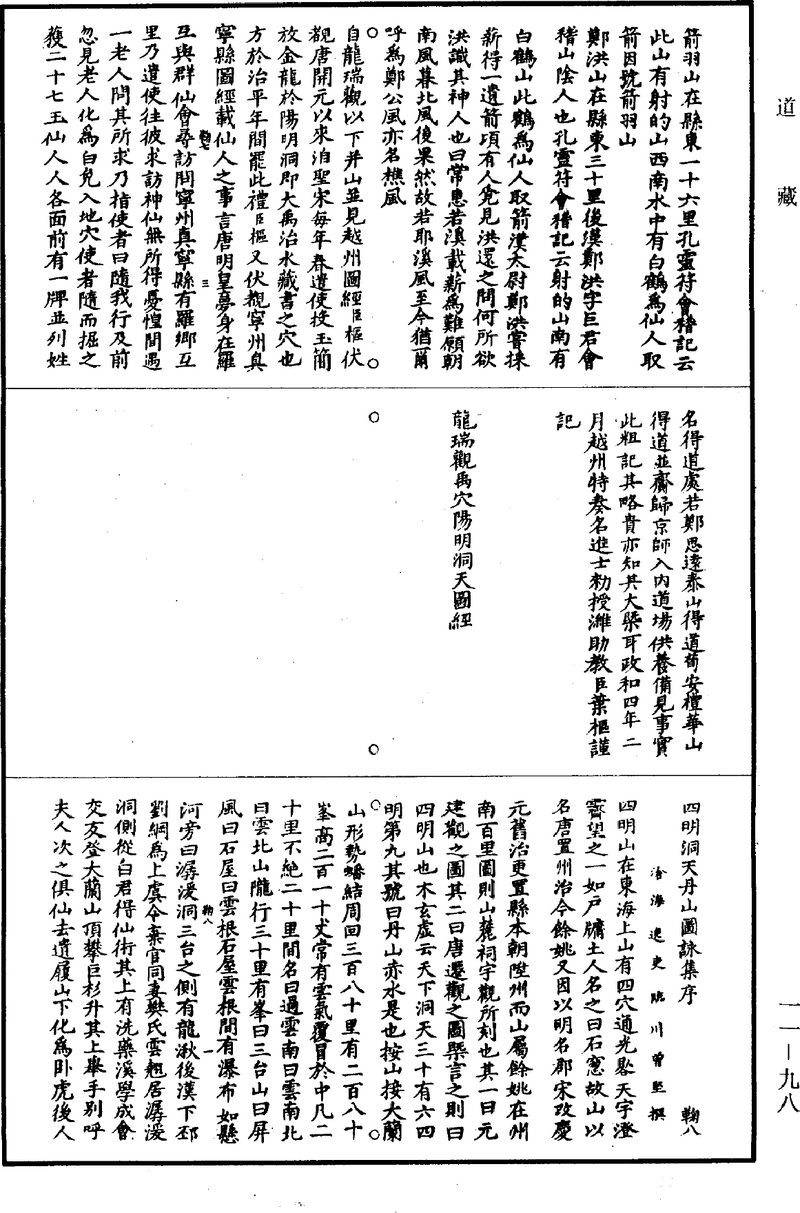 道藏
箭羽山在縣東一十六里孔靈符會稽記云
此山有射的山西南水中有白鶴為仙人取
箭因號箭羽山
鄭洪山在縣東三十里後漢鄭洪字巨君會
稽山陰人也孔靈符會稽記云射的山南有
白鶴山此鶴為仙人取箭漢太尉鄭洪嘗採
薪得一遺箭頃有人覓見洪還之問何所欲
洪識其神人也曰常患若溪載薪為難願朝
南風暮北風後果然故若耶溪風至今猶爾
呼為鄭公風亦名樵風
自龍瑞觀以下并山並見越州圖經臣樞伏
觀唐開元以來洎聖宋每年春遣使投玉簡
放金龍於陽明洞即大禹治水藏書之穴也
方於治平年間罷此禮臣樞又伏覩寧州真
寧縣圖經載仙人之事言唐明皇夢身在羅
三
互與群仙會尋訪問寧州真寧縣有羅鄉互
里乃遣使往彼求訪神仙無所得憂惶間遇
一老人問其所求乃指使者曰隨我行及前
忽見老人化為白兔入地穴使者隨而掘之
獲二十七玉仙人人各面前有一牌並列姓
名得道處若鄭思遠泰山得道荀安檀華山
得道並齎歸京師入內道場供養備見事實
此粗記其略貴亦知其大槩耳政和四年二
月越州特奏名進士勑授濰助教臣葉樞謹
記
龍瑞觀禹穴陽明洞天圖經
四明洞天丹山圖詠集序
鞠八
滄海逸吏臨川曾堅撰
四明山在東海上山有四穴通光毎天宇澄
霽望之一如戶牖土人名之曰石窻故山以
名唐置州治今餘姚又因以明名郡宋改慶
元舊治更置縣本朝陞州而山屬餘姚在州
南百里圖則山麓祠宇觀所刻也其一曰元
建觀之圖其二曰唐遷觀之圖槩言之則曰
四明山也木玄虛云天下洞天三十有六四
明第九其號曰丹山赤水是也按山接大蘭
山形勢蟠結周回三百八十里有二百八十
峯高二百一十丈常有雲氣覆冒於中凡二
十里不絕二十里間名曰過雲南曰雲南北
曰雲北山隴行三十里有峯曰三台山曰屏
風曰石屋曰雲根石屋雲根間有瀑布如懸
鞠八
一
河旁曰潺湲洞三台之側有龍湫後漢下邳
劉綱為上虞令棄官同妻樊氏雲翹居潺湲
洞側從白君得仙術其上有洗藥溪學成會
交友登大蘭山頂攀巨杉升其上舉手別呼
夫人次之俱仙去遺履山下化為臥虎後人
一一-九八